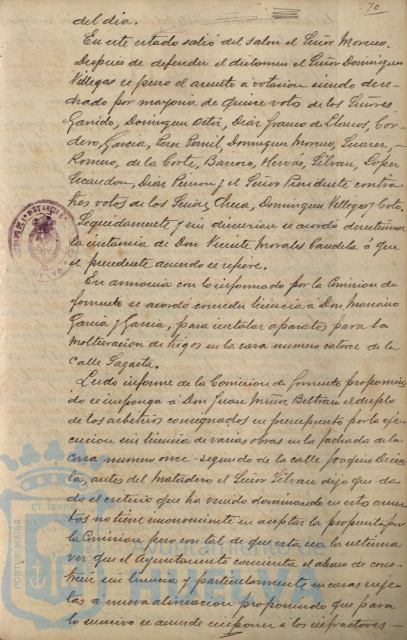 70
del dia.
En este estado salió del salon el Señor Moreno.
Después de defender el dictamen el Señor Dominguez
Villegas se puso el asunto á votacion siendo dese-
chado por mayoria de quince votos de los Señores
Garrido, Dominguez Ortiz, Diaz Franco de Llanos, Cor-
dero, Garcia, Dominguez Moreno, Suarez,
Romero, de la Corte, Barroso, Hervas, Silvan, Lopez
Diaz y el Señor Presidente contra
tres votos de los Señores Checa, Dominguez Villegas y Coto.
Seguidamente y sin discusion se acordó desestimar
la instancia de Don Vicente Morales Candela á que
el precedente acuerdo se refiere.
En armonia con lo informado por la Comision de
fomento se acordó conceder licencia á Don Mariano
Garcia y Garcia, para instalar aparatos para la
molturacion de trigos en la casa numero catorce de la
Calle Sagasta.
Leido informe de la Comision de fomento proponien-
do se imponga á Don Juan Muñoz Beltran el duplo
de los arbitrios consignados en presupuesto por la eje-
cucion sin licencia de varias obras en la fachada de la
casa numero once segundo de la calle Joaquin Dicen-
ta, antes del Matadero el Señor Silvan dijo que da-
do el criterio que ha venido dominando en estos asun-
tos no tiene inconveniente en aceptar la propuesta por
la Comision pero con tal de que esta sea la ultima
vez que el Ayuntamiento consienta el abuso de cons-
truir sin licencia y particularmente en casas suje-
tas á nueva alineacion proponiendo que para
lo sucesivo se acuerde imponer á los infractores
Ayuntamiento de
HUELVA
PORTUS MARIS
ET TERRAE